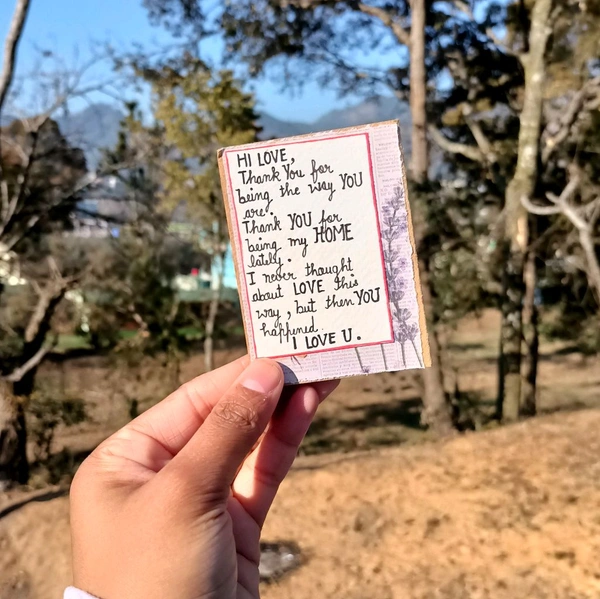 HI LOVE,
Thank You for
being the way YOU
are.
Thank YOU for
being my HOME
lately.
I never thought
about LOVE this
way, but then YOU
happened.
I LOVE U.